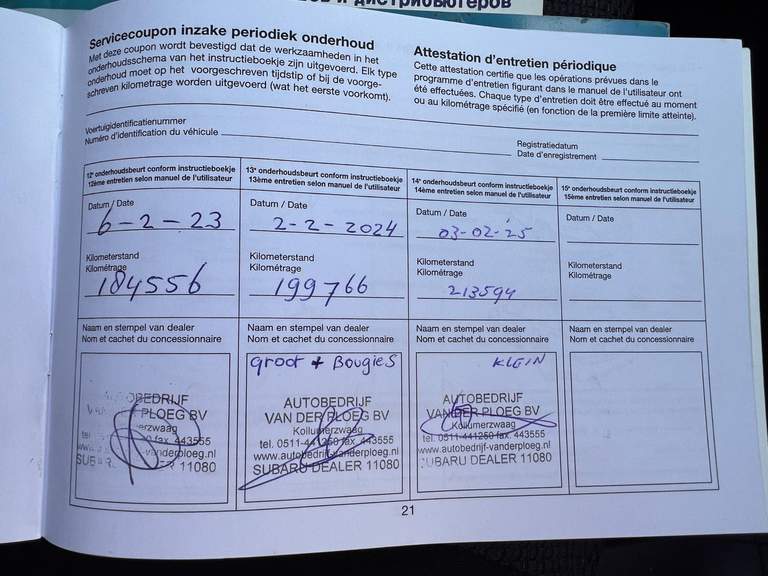 дистрибьютеров
Servicecoupon inzake periodiek onderhoud
Met deze coupon wordt bevestigd dat de werkzaamheden in het
onderhoudsschema van het instructieboekje zijn uitgevoerd. Elk type
onderhoud moet op het voorgeschreven tijdstip of bij de voorge-
schreven kilometrage worden uitgevoerd (wat het eerste voorkomt).
Attestation d'entretien périodique
Cette attestation certifie que les opérations prévues dans le
programme d'entretien figurant dans le manuel de l'utilisateur ont
été effectuées. Chaque type d'entretien doit être effectué au moment
ou au kilométrage spécifié (en fonction de la première limite atteinte).
Voertuigidentificatienummer
Numéro d'identification du véhicule
Registratiedatum
Date d'enregistrement
12e onderhoudsbeurt conform instructieboekje
12ème entretien selon manuel de l'utilisateur
Datum / Date
6-2-23
Kilometerstand
Kilométrage
184556
Naam en stempel van dealer
Nom et cachet du concessionnaire
OBEDRIJF
PLOEG BV
erzwaag
fax. 443555
-vanderploeg.nl
DEALER 11080
13e onderhoudsbeurt conform instructieboekje
13ème entretien selon manuel de l'utilisateur
Datum / Date
2-2-2024
Kilometerstand
Kilométrage
199766
Naam en stempel van dealer
Nom et cachet du concessionnaire
groot + Bougies
AUTOBEDRIJF
VAN DER PLOEG BV
Kollumerzwaag
tel. 0511-441250 fax. 443555
www.autobedrijf-vanderploeg.nl
SUBARU DEALER 11080
14e onderhoudsbeurt conform instructieboekje
14ème entretien selon manuel de l'utilisateur
Datum / Date
03-02-25
Kilometerstand
Kilométrage
213594
Naam en stempel van dealer
Nom et cachet du concessionnaire
KLEIN
AUTOBEDRIJF
VAN DER PLOEG BV
Kollumerzwaag
tel. 0511-441250 fax. 443555
www.autobedrijf-vanderploeg.nl
SUBARU DEALER 11080
15e onderhoudsbeurt conform instructieboekje
15ème entretien selon manuel de l'utilisateur
Datum / Date
Kilometerstand
Kilométrage
Naam en stempel van dealer
Nom et cachet du concessionnaire
21